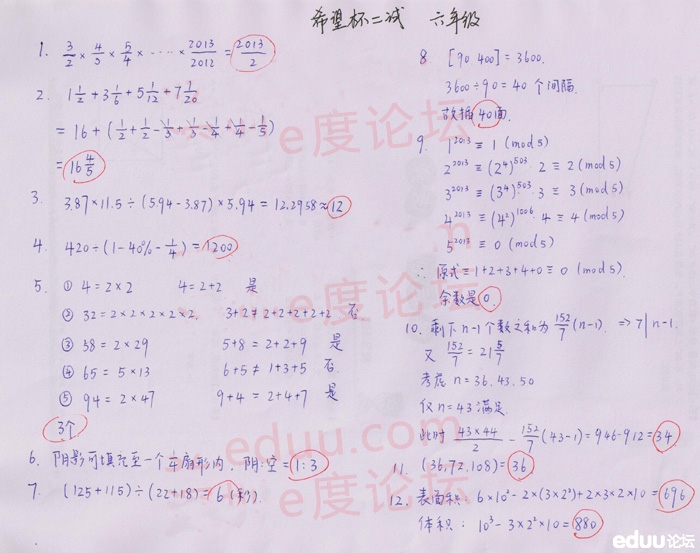 希望杯二试 六年级
1. 3/2 × 4/3 × 5/4 × ····· × 2013/2012 = 2013/2
2. 1 1/2 + 3 1/6 + 5 1/12 + 7 1/20
= 16 + (1/2 + 1/2 - 1/3 + 1/3 - 1/4 + 1/4 - 1/5)
= 16 4/5
3. 3.87×11.5÷(5.94-3.87)×5.94=12.2958≈12
4. 420÷(1-40%-1/4)=1200
5. ① 4=2×2 4=2+2 是
② 32=2×2×2×2×2. 3+2≠2+2+2+2+2 否
③ 38=2×29 5+8=2+2+9 是
④ 65=5×13 6+5≠1+3+5 否.
⑤ 94=2×47 9+4=2+4+7 是
3个
6. 阴影可填充至一个1/4扇形内, 阴:空=1:3
7. (125+115)÷(22+18)=6(秒).
8. [90 400]=3600.
3600÷90=40 个间隔.
故插40面.
9. 1^2013 ≡ 1 (mod 5)
2^2013 ≡ (2^4)^503 · 2 ≡ 2 (mod 5)
3^2013 ≡ (3^4)^503 · 3 ≡ 3 (mod 5)
4^2013 ≡ (4^2)^1006 · 4 ≡ 4 (mod 5)
5^2013 ≡ 0 (mod 5)
∴ 原式≡1+2+3+4+0≡0 (mod 5).
余数是0.
10. 剩下 n-1个数之和为 152/7 (n-1). ⇒ 7|n-1.
又 152/7 = 21 5/7
考虑 n=36.43.50
仅n=43满足.
此时 43×44/2 - 152/7 (43-1)=946-912=34
11. (36,72,108)=36
12. 表面积: 6×10²-2×(3×2²)+2×3×2×10=696
体积: 10³-3×2²×10=880
e度论坛
e度论坛
eduu.com
e度论坛
eduu论坛